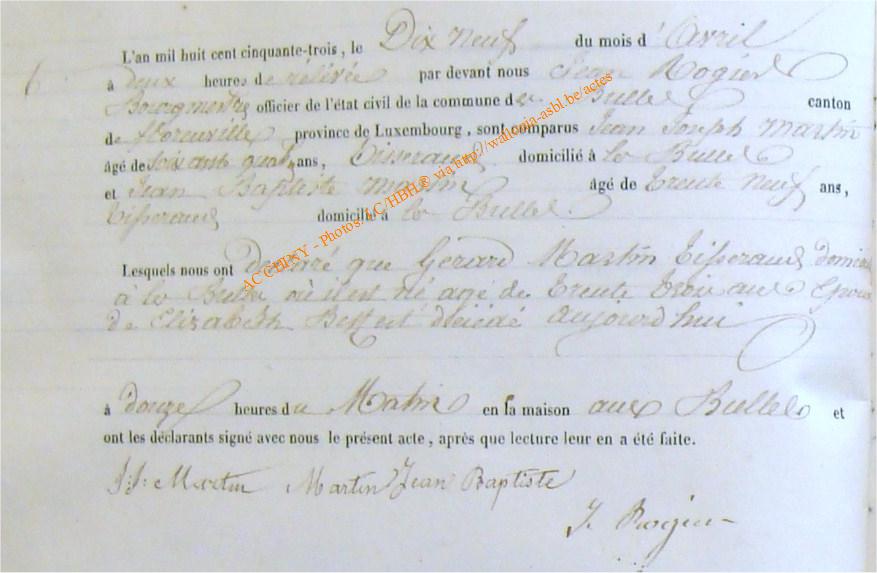 L'an mil huit cent cinquante-trois, le Dix neuf du mois d'Avril
6
à deux heures de rélévée par devant nous Jean Rogier
Bourgmestre officier de l'état civil de la commune de Bulles canton
de florenville province de Luxembourg, sont comparus Jean Joseph Martin
âgé de soixante quatre ans, Tisserand domicilié à la Bulle
et Jean Baptiste Martin âgé de trente neuf ans,
Tisserand domicilié à la Bulle.
Lesquels nous ont declaré que Gérard Martin Tisserand
à la Bulle où il est né agé de trente trois ans Epoux
de Elizabeth est décédé aujourd'hui
à douze heures du Matin en la maison aux Bulles et
ont les déclarants signé avec nous le présent acte, après que lecture leur en a été faite.
J: J: Martin Martin Jean Baptiste
J. Rogier
AC CHINY - Photos: LC/HBH® via http://wallonia-asbl.be/actes